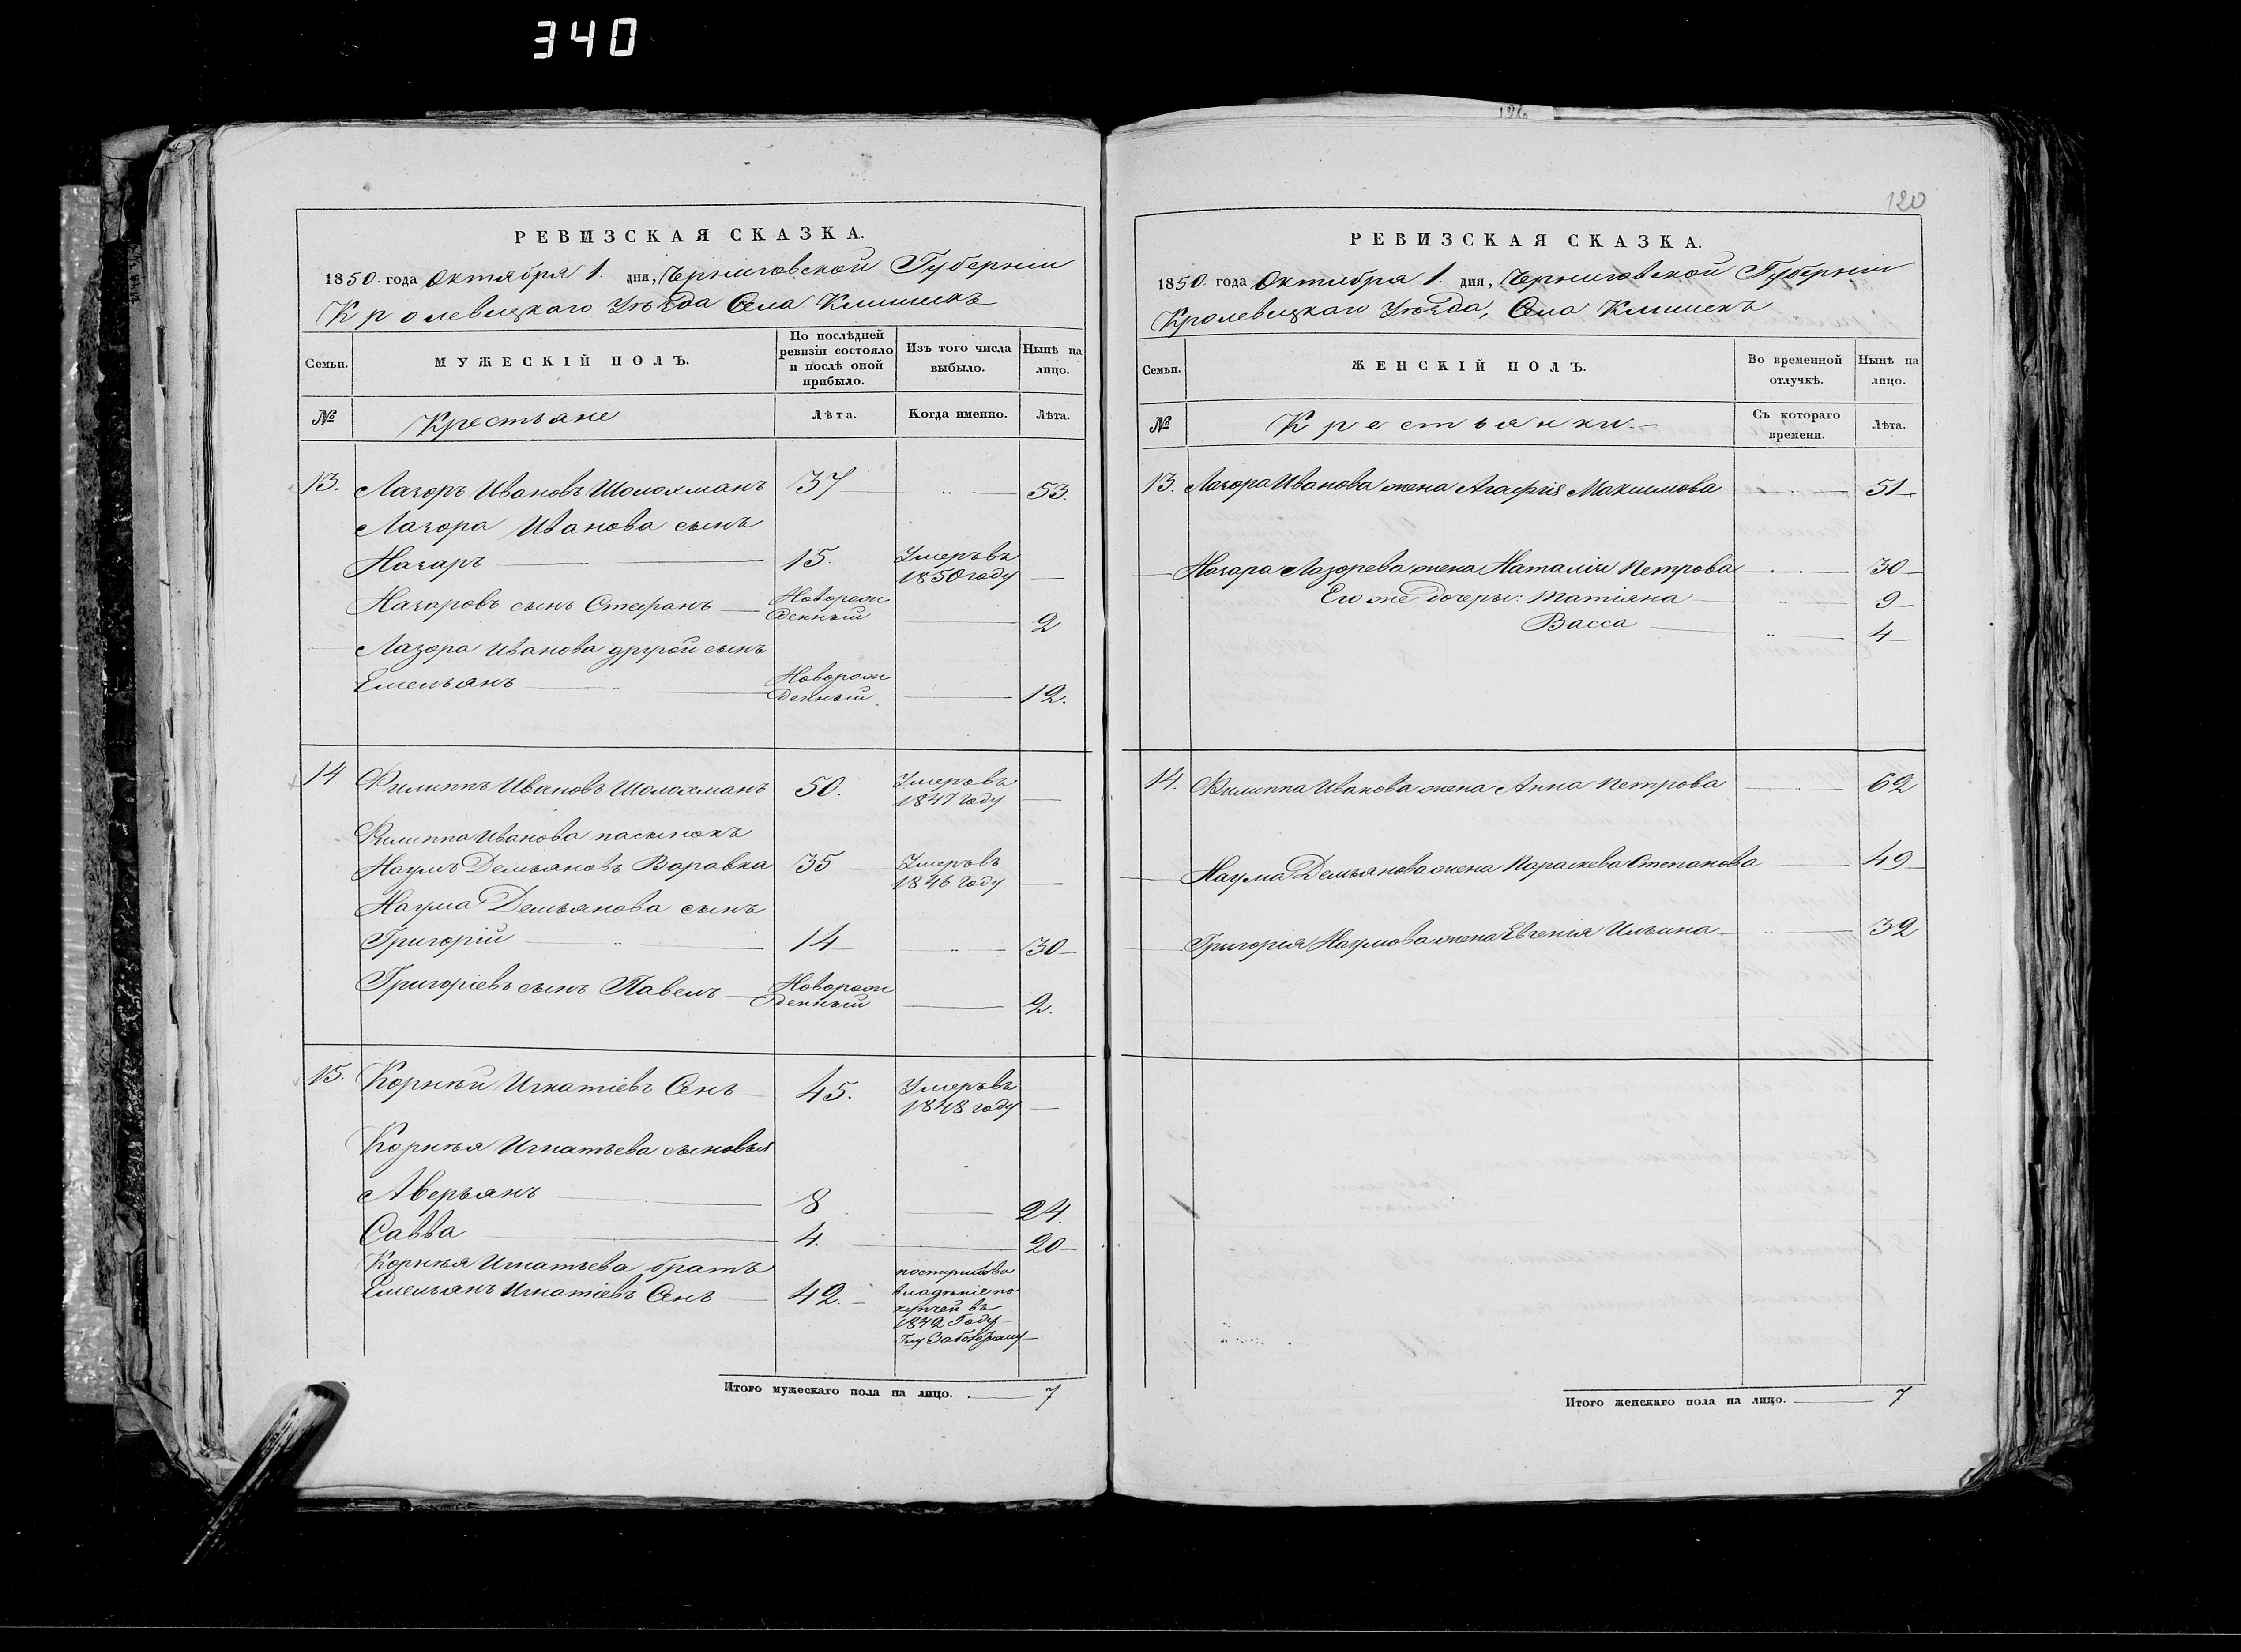 340
126
РЕВИЗСКАЯ СКАЗКА.
1850. года Октября 1. дня, Черниговской Губерніи
Кролевецкаго Уѣзда Села Клишекъ
Семьи.
МУЖЕСКІЙ ПОЛЪ.
По послѣдней
ревизіи состояло
и послѣ оной
прибыло.
Изъ того числа
выбыло.
Нынѣ на
лицо.
№
Крестьяне
Лѣта.
Когда именно.
Лѣта.
13. Лазоръ Ивановъ Шоломанъ 37 53.
Лазора Иванова сынъ
Назаръ 15. Умеръ въ
1850 году
Назаровъ сынъ Стефанъ Новорож
денный 2
Лазора Иванова другой сынъ
Емельянъ Новорож
денный. 12.
14. Филиппъ Ивановъ Шоломанъ 50. Умеръ въ
1847 году
Филиппа Иванова пасынокъ
Наумъ Демьяновъ Варавка 35 Умеръ въ
1846 году
Наума Демьянова сынъ
Григорій 14 30
Григоріевъ сынъ Павелъ Новорож
денный 2.
15. Корнѣй Игнатіевъ Сенъ 45. Умеръ въ
1848 году
Корнѣя Игнатьева сыновья
Аверьянъ 8 24.
Савва 4. 20
Корнѣя Игнатьева братъ
Емельянъ Игнатіевъ Сенъ 42. поступилъ во
владѣніе по
купчей въ
1842 Году
Итого мужескаго пола на лицо. 7
120
РЕВИЗСКАЯ СКАЗКА.
1850. года Октября 1. дня, Черниговской Губерніи
Кролевецкаго Уѣзда, Села Клишекъ
Семьи.
ЖЕНСКІЙ ПОЛЪ.
Во временной
отлучкѣ.
Нынѣ на
лицо.
№
Крестьянки
Съ котораго
времени.
Лѣта.
13. Лазора Иванова жена Агафія Максимова 51
Назара Лазорева жена Наталія Петрова 30
Его же дочеры: Татіяна 9
Васса 4
14. Филиппа Иванова жена Анна Петрова 62
Наума Демьянова жена Параскева Степанова 49
Григорія Наумова жена Евгенія Ильина 32
Итого женскаго пола на лицо. 7